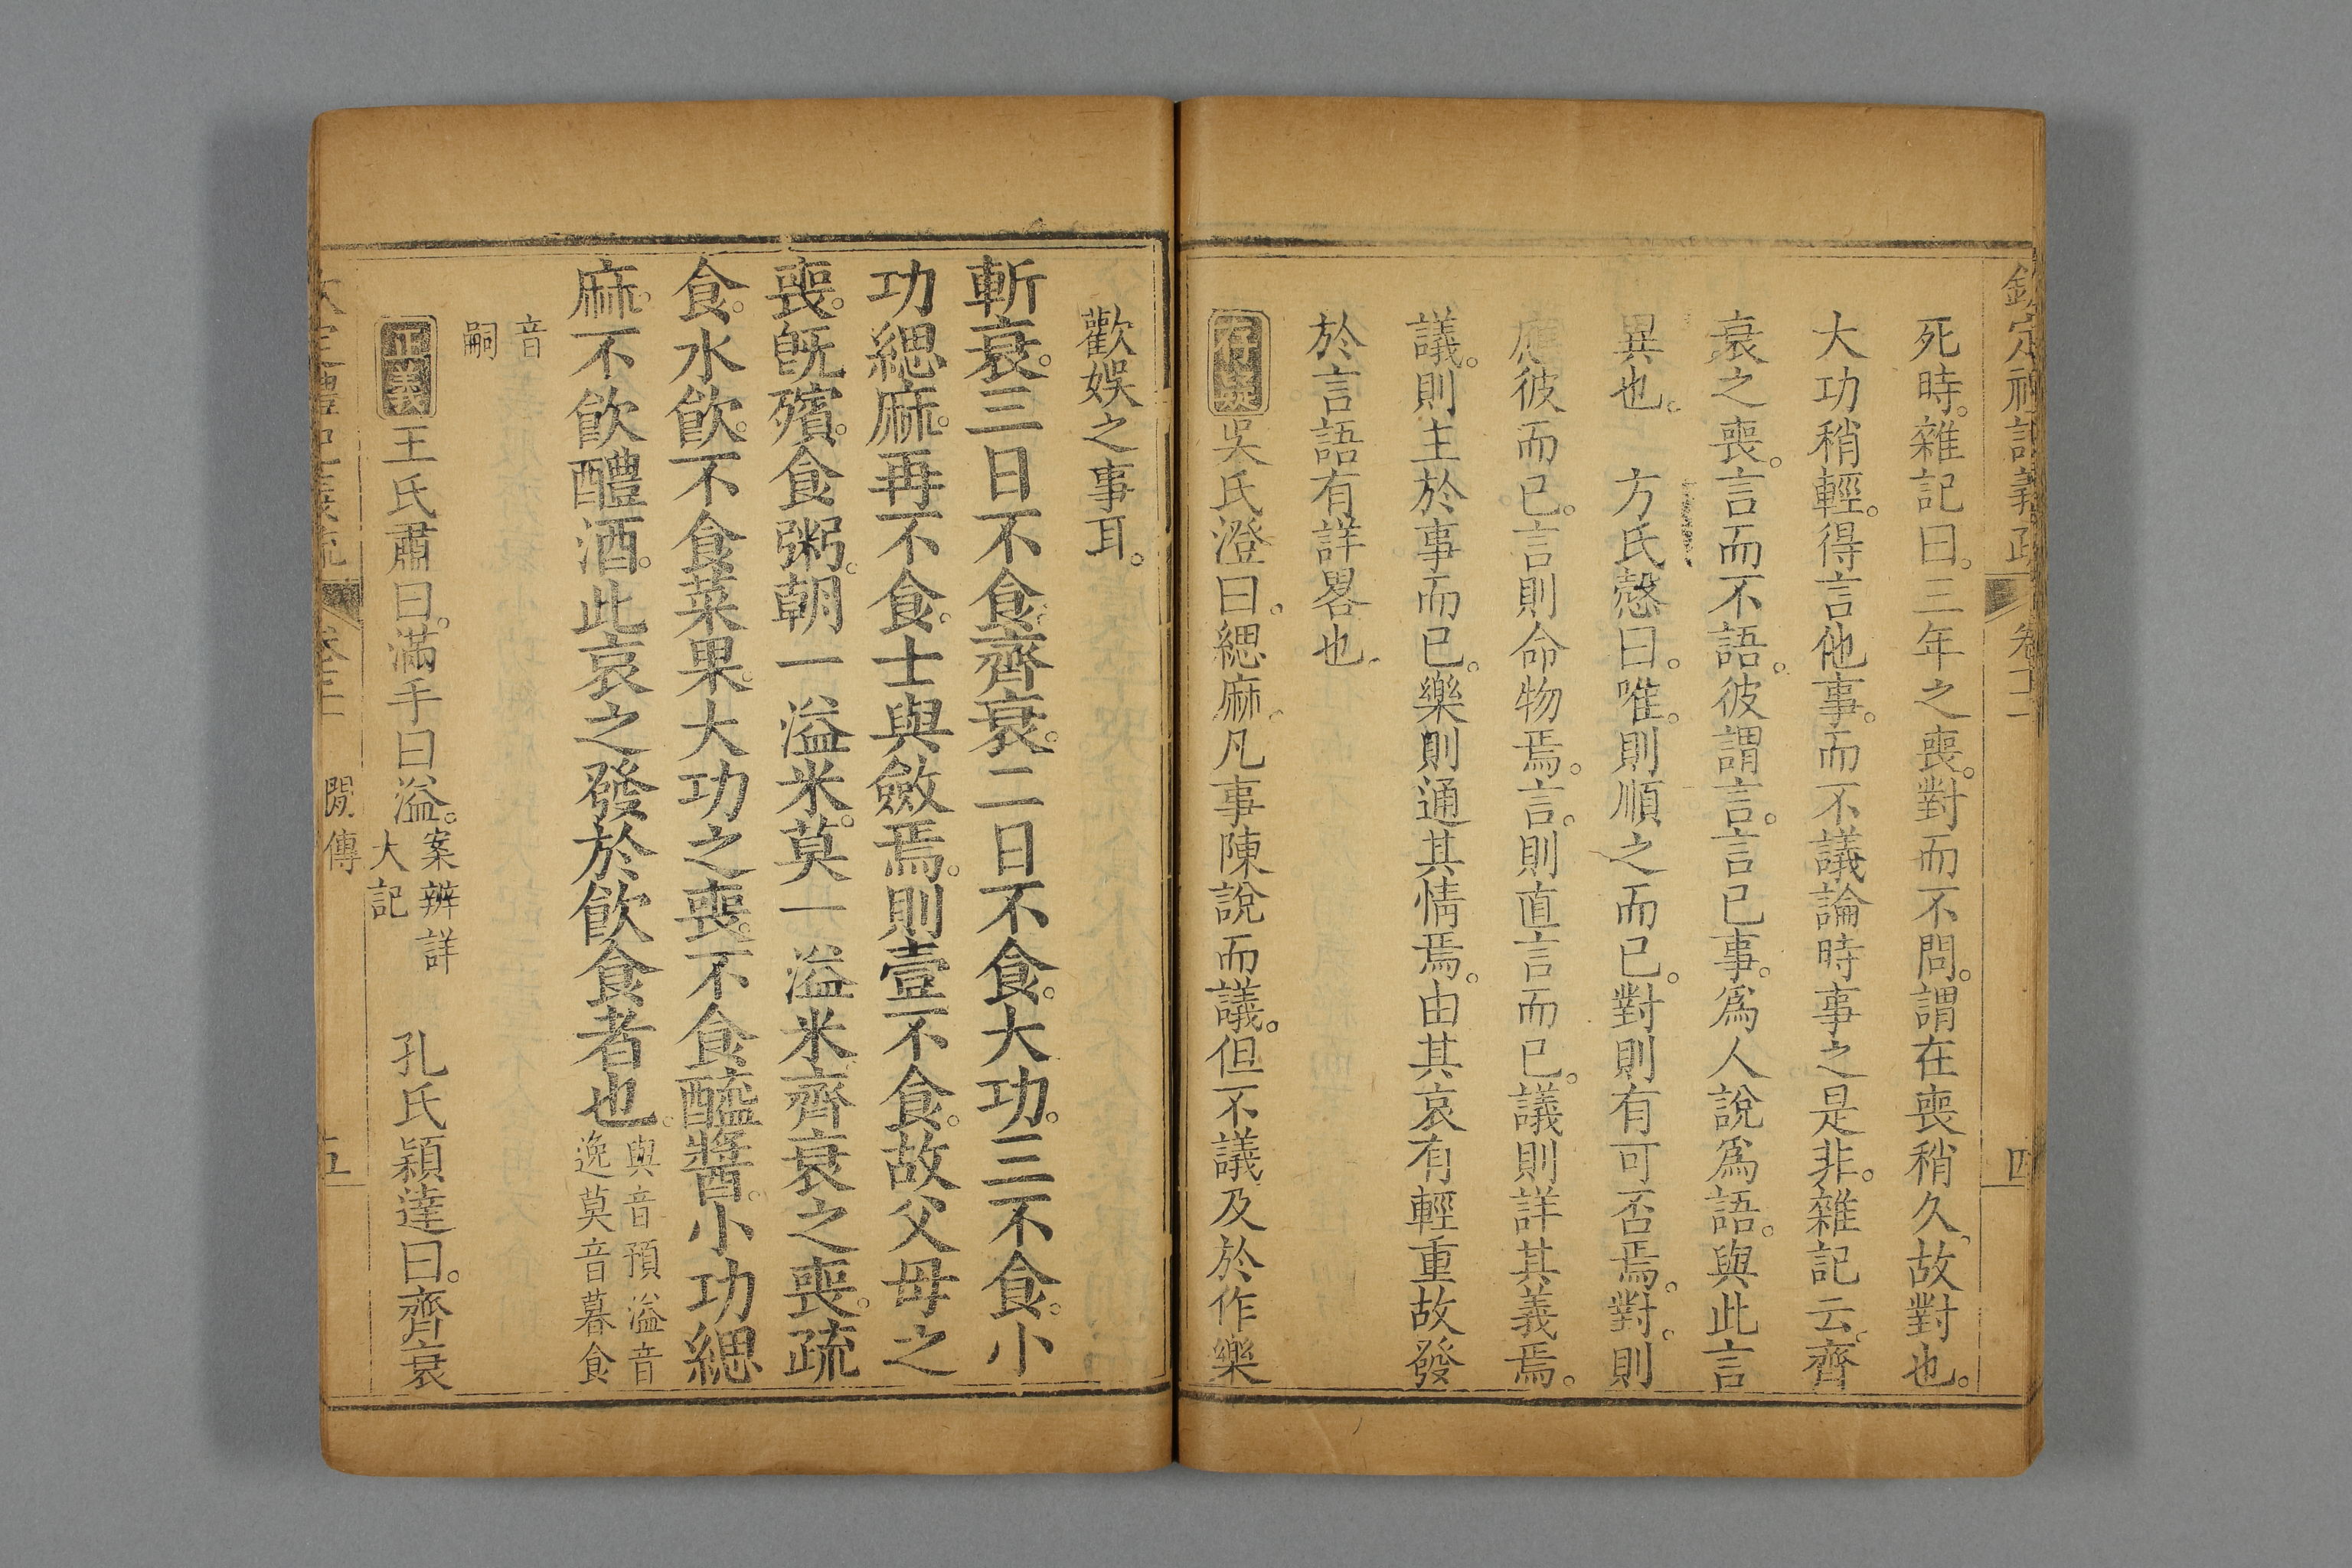 欽定禮記義疏 卷七十一 四
死時。雜記曰。三年之喪。對而不問。謂在喪稍久、故對也。
大功稍輕。得言他事。而不議論時事之是非。雜記云。齊
衰之喪。言而不語。彼謂言。言已事。爲人說爲語。與此言
異也。　方氏慤曰。唯。則順之而已。對則有可否焉。對。則
應彼而已。言則命物焉。言。則直言而已。議則詳其義焉。
議。則主於事而已。樂則通其情焉。由其哀有輕重故發
於言語有詳畧也。
存疑吳氏澄曰。緦麻。凡事陳說而議。但不議及於作樂
歡娛之事耳。
斬衰。三日不食。齊衰。二日不食。大功。三不食。小
功緦麻。再不食。士與斂焉。則壹不食。故父母之
喪。旣殯。食粥。朝一溢米。莫一溢米齊衰之喪。疏
食。水飮。不食菜果。大功之喪。不食醯醬。小功緦
麻。不飮醴酒。此哀之發於飮食者也。
與音預溢音
逸莫音暮食
音
嗣
正義王氏肅曰。滿手曰溢。
案辨詳
大記
孔氏穎達曰。齊衰
閒傳
五